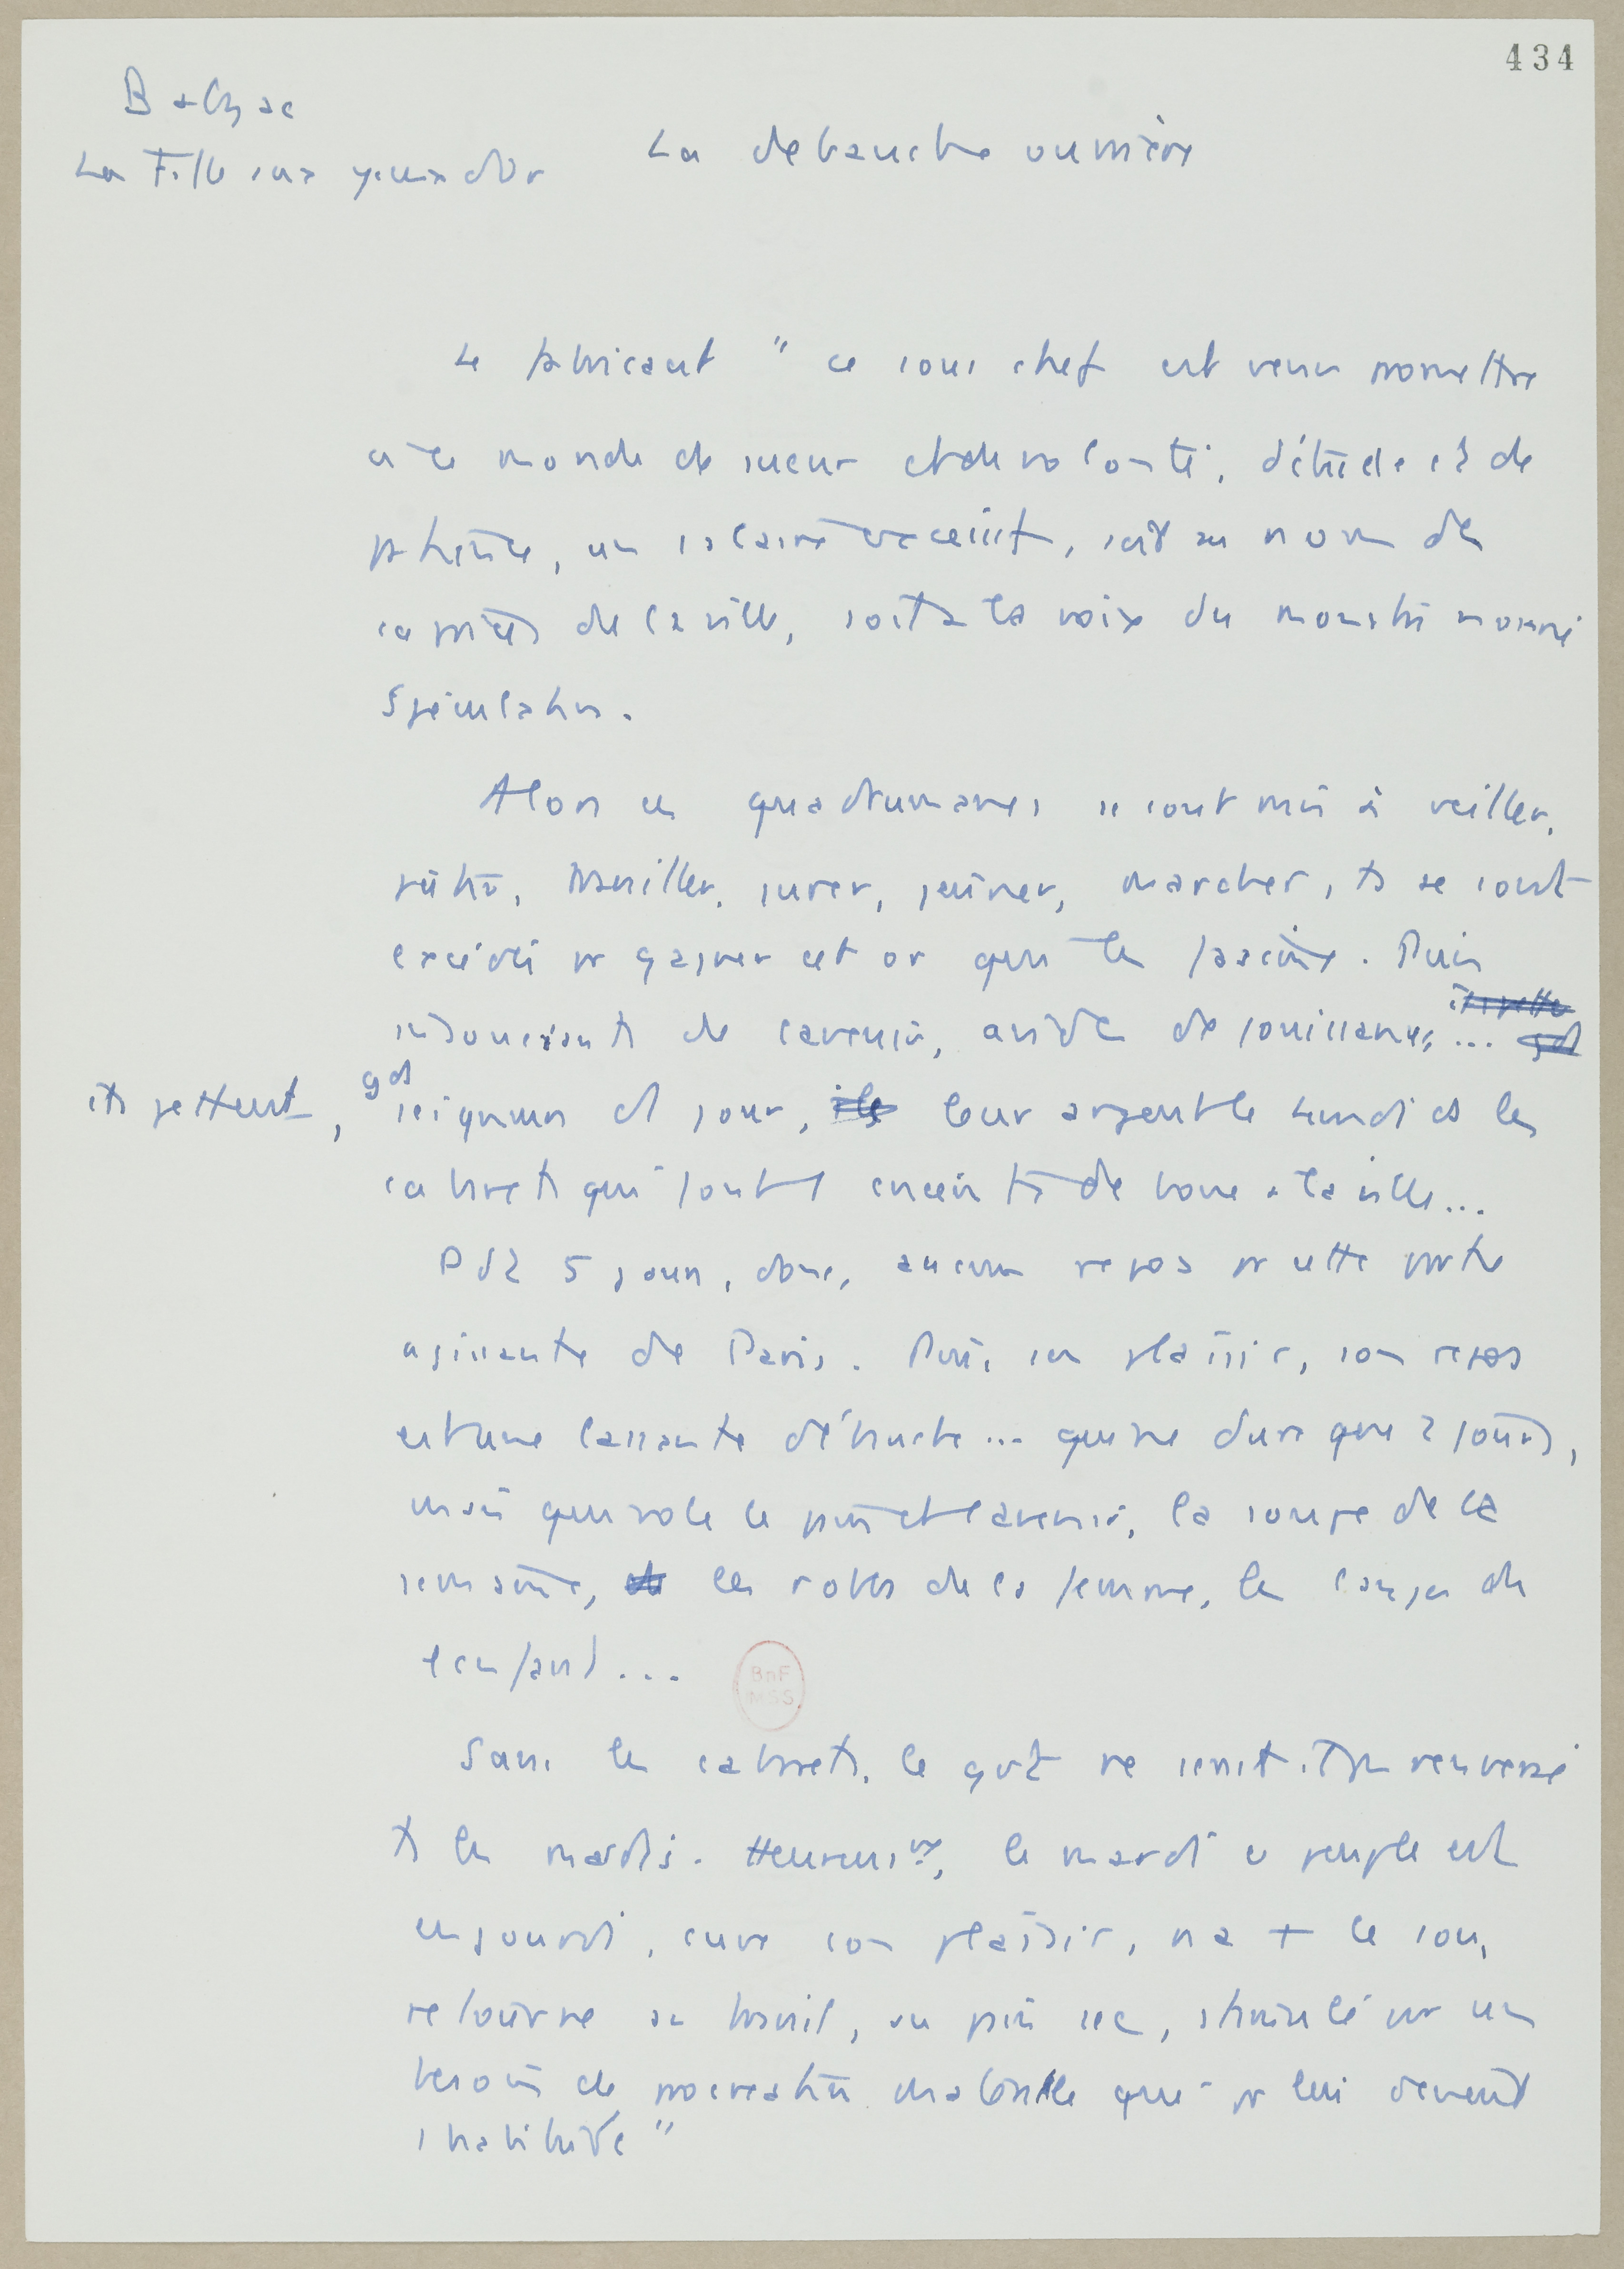 434
Balzac
La Fille aux yeux d'Or
La debauche ouvrière
Le fabricant " ce sous chef est venu promettre
à ce monde de sueur et de volonté, d'étude et de
patience, un salaire excessif, soit au nom des
caprices de la ville, soit à la voix du monstre nommé
Spéculation.
Alors ces quadrumanes se sont mis à veiller,
pâtir, travailler, jurer, jeûner, marcher, ts se sont
excédés pr gagner cet or qui les fascine. Puis
insouciants de l'avenir, avides de jouissances ...
ils jettent, gds seigneurs d'1 jour, leur argent le Lundi ds les
cabarets qui font 1 enceinte de boue à la ville...
Pdt 5 jours, donc, aucun repos pr cette partie
agissante de Paris. Puis, son plaisir, son repos
est une lassante débauche ... qui ne dure que 2 jours,
mais qui vole le pain et l'avenir, la soupe de la
semaine, les robes de la femme, les langes de
l'enfant...
Sans les cabarets, le gvt ne serait-il pas renversé
ts les mardis. Heureusmt, le mardi ce peuple est
engourdi, cuve son plaisir, n'a + le sou,
retourne au travail, au pain sec, stimulé par un
besoin de procréation matérielle qui pr lui devient
1 habitude "
BnF
MSS